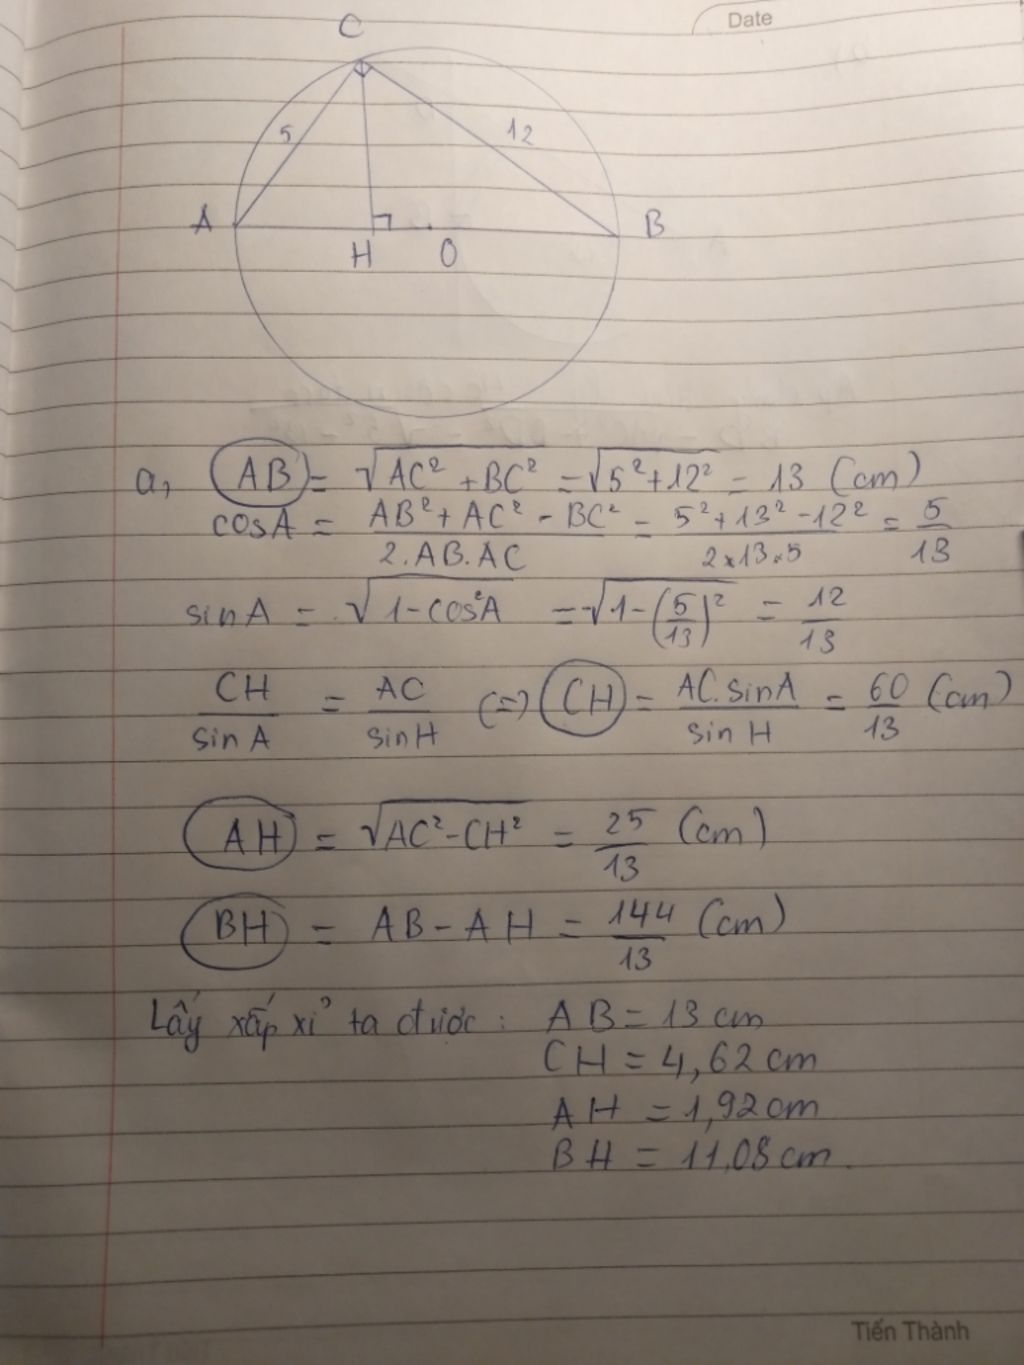 Date
C
5
12
A
B
H
O
a, AB = √AC² + BC² = √5² + 12² = 13 (cm)
cosA = AB² + AC² - BC² / 2.AB.AC = 5² + 13² - 12² / 2×13×5 = 5/13
sinA = √1 - cos²A = √1 - (5/13)² = 12/13
CH/sinA = AC/sinH (=) CH = AC.sinA/sinH = 60/13 (cm)
AH = √AC² - CH² = 25/13 (cm)
BH = AB - AH = 144/13 (cm)
Lấy xấp xỉ ta được: AB = 13 cm
CH = 4,62 cm
AH = 1,92 cm
BH = 11,08 cm.
Tiến Thành